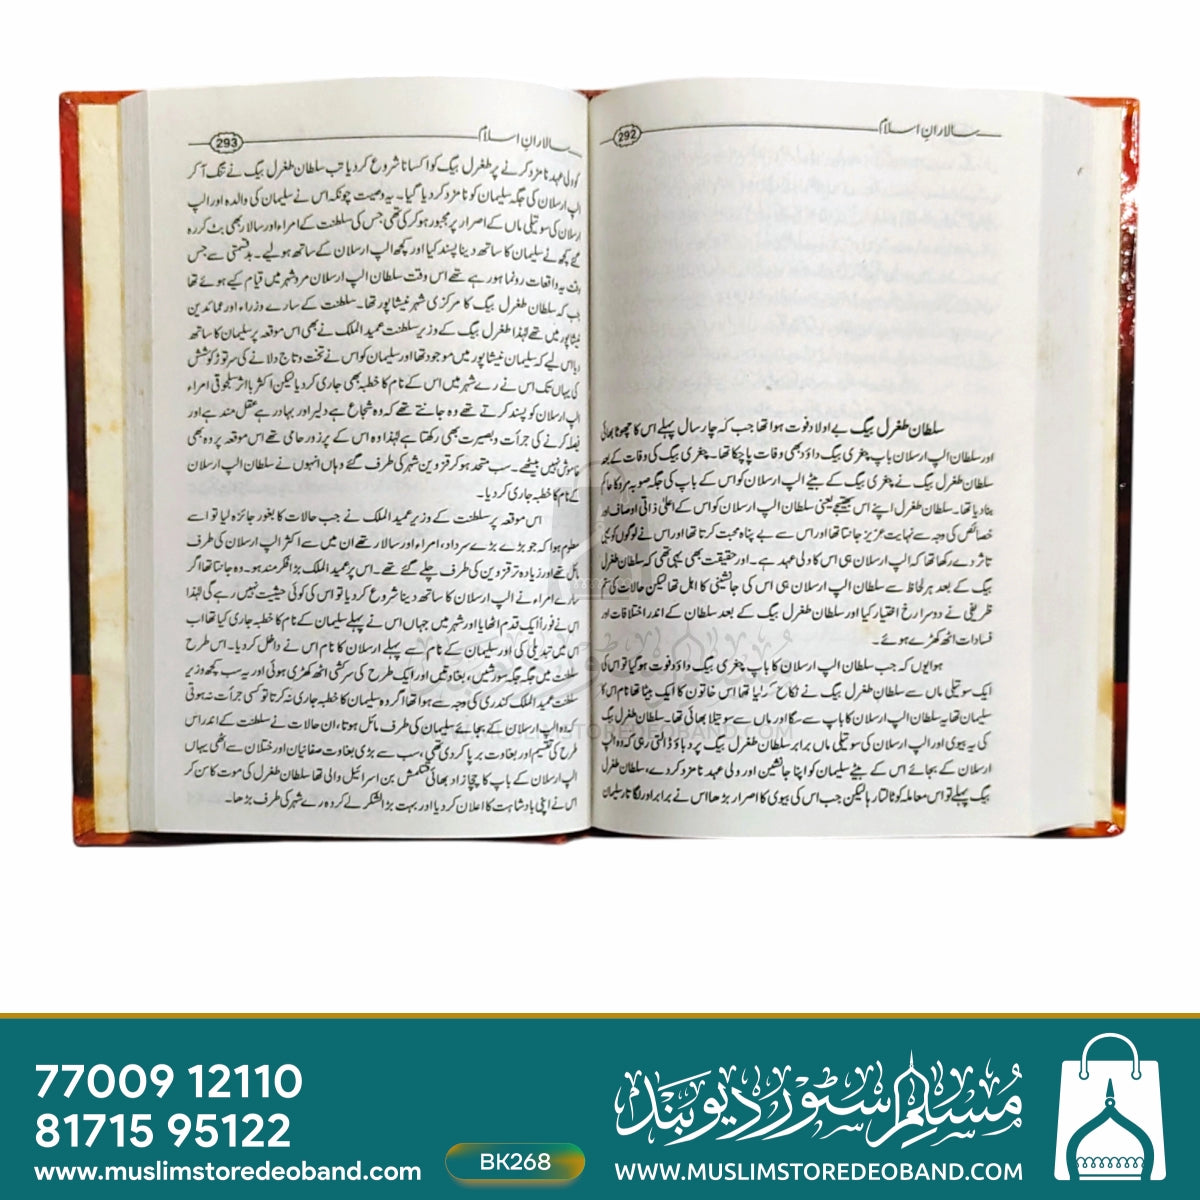 سالارانِ اسلام
292
سلطان طغرل بیگ بے اولاد فوت ہوا تھا جب کہ چار سال پہلے اس کا چھوٹا بھائی
اور سلطان الپ ارسلان باپ چغری بیگ داؤد بھی وفات پا چکا تھا۔ چغری بیگ کی وفات کے بعد
سلطان طغرل بیگ نے چغری بیگ کے بیٹے الپ ارسلان کو اس کے باپ کی جگہ صوبہ مرو کا حاکم
بنا دیا تھا۔ سلطان طغرل اپنے اس بھتیجے یعنی سلطان الپ ارسلان کو اس کے اعلیٰ ذاتی اوصاف اور
خصائص کی وجہ سے نہایت عزیز جانتا تھا اور اس سے بے پناہ محبت کرتا تھا اور اس نے لوگوں کو یہی
تاثر دے رکھا تھا کہ الپ ارسلان ہی اس کا ولی عہد ہے۔ اور حقیقت بھی یہی تھی کہ سلطان طغرل
بیگ کے بعد ہر لحاظ سے سلطان الپ ارسلان ہی اس کی جانشینی کا اہل تھا لیکن حالات کی ستم
ظریفی نے دوسرا رخ اختیار کیا اور سلطان طغرل بیگ کے بعد سلطان کے اندر اختلافات اور
فسادات اٹھ کھڑے ہوئے۔
ہوا یوں کہ جب سلطان الپ ارسلان کا باپ چغری بیگ داؤد فوت ہو گیا تو اس کی
ایک سوتیلی ماں سے سلطان طغرل بیگ نے نکاح کر لیا تھا اس خاتون کا ایک بیٹا تھا نام اس کا
سلیمان تھا یہ سلطان الپ ارسلان کا باپ سے سگا اور ماں سے سوتیلا بھائی تھا۔ سلطان طغرل بیگ
کی یہ بیوی اور الپ ارسلان کی سوتیلی ماں برابر سلطان طغرل بیگ پر دباؤ ڈالتی رہی کہ وہ الپ
ارسلان کے بجائے اس کے بیٹے سلیمان کو اپنا جانشین اور ولی عہد نامزد کر دے، سلطان طغرل
بیگ پہلے تو اس معاملہ کو ٹالتا رہا لیکن جب اس کی بیوی کا اصرار بڑھا اس نے برابر اور لگاتار سلیمان
سالارانِ اسلام
293
کو ولی عہد نامزد کرنے پر طغرل بیگ کو اکسانا شروع کر دیا تب سلطان طغرل بیگ نے تنگ آ کر
الپ ارسلان کی جگہ سلیمان کو نامزد کر دیا گیا۔ یہ وصیت چونکہ اس نے سلیمان کی والدہ اور الپ
ارسلان کی سوتیلی ماں کے اصرار پر مجبور ہو کر کی تھی جس کی سلطنت کے امراء اور سالار بھی بٹ کر رہ
گئے کچھ نے سلیمان کا ساتھ دینا پسند کیا اور کچھ الپ ارسلان کے ساتھ ہو لیے۔ بدقسمتی سے جس
وقت یہ واقعات رونما ہو رہے تھے اس وقت سلطان الپ ارسلان مرو شہر میں قیام کیے ہوئے تھا
جب کہ سلطان طغرل بیگ کا مرکزی شہر نیشاپور تھا۔ سلطنت کے سارے وزراء اور عمائدین
نیشاپور میں تھے لہٰذا طغرل بیگ کے وزیر سلطنت عمید الملک نے بھی اس موقعہ پر سلیمان کا ساتھ
دیا اس لیے کہ سلیمان نیشاپور میں موجود تھا اور سلیمان کو اس نے تخت و تاج دلانے کی سرتوڑ کوشش
کی یہاں تک اس نے رے شہر میں اس کے نام کا خطبہ بھی جاری کر دیا لیکن اکثر با اثر سلجوقی امراء
الپ ارسلان کو پسند کرتے تھے وہ جانتے تھے کہ وہ شجاع ہے دلیر اور بہادر ہے عقل مند ہے اور
فیصلہ کرنے کی جرأت و بصیرت بھی رکھتا ہے لہٰذا وہ اس کے پرزور حامی تھے اس موقعہ پر وہ بھی
خاموش نہیں بیٹھے۔ سب متحد ہو کر قزوین شہر کی طرف گئے وہاں انہوں نے سلطان الپ ارسلان
کے نام کا خطبہ جاری کر دیا۔
اس موقعہ پر سلطنت کے وزیر عمید الملک نے جب حالات کا بغور جائزہ لیا تو اسے
معلوم ہوا کہ جو بڑے بڑے سردار، امراء اور سالار تھے ان میں سے اکثر الپ ارسلان کی طرف
مائل تھے اور زیادہ تر قزوین کی طرف چلے گئے تھے۔ اس پر عمید الملک بڑا فکر مند ہو۔ وہ جانتا تھا اگر
سارے امراء نے الپ ارسلان کا ساتھ دینا شروع کر دیا تو اس کی کوئی حیثیت نہیں رہے گی لہٰذا
اس نے فوراً ایک قدم اٹھایا اور شہر میں جہاں اس نے پہلے سلیمان کے نام کا خطبہ جاری کیا تھا اب
اس میں تبدیلی کی اور سلیمان کے نام سے پہلے ارسلان کا نام اس نے داخل کر دیا۔ اس طرح
سلطنت میں جگہ جگہ شورشیں، بغاوتیں اور ایک طرح کی سرکشی اٹھ کھڑی ہوئی اور یہ سب کچھ وزیر
سلطنت عمید الملک کندری کی وجہ سے ہوا تھا اگر وہ سلیمان کا خطبہ جاری نہ کرتا تو کسی جرأت نہ ہوتی
کہ وہ الپ ارسلان کے بجائے سلیمان کی طرف مائل ہوتا، ان حالات نے سلطنت کے اندر اس
طرح کی تقسیم اور بغاوت برپا کر دی تھی، سب سے بڑی بغاوت صفانیان اور ختلان سے اٹھی یہاں
الپ ارسلان کے باپ کا چچا زاد بھائی قتلمش بن اسرائیل والی تھا سلطان طغرل کی موت کا سن کر
اس نے اپنی بادشاہت کا اعلان کر دیا اور بہت بڑا لشکر لے کر وہ رے شہر کی طرف بڑھا۔
مسلم سٹور دیوبند
WWW.MUSLIMSTOREDEOBAND.COM
77009 12110
81715 95122
www.muslimstoredeoband.com
BK268
مسلم سٹور دیوبند
www.MUSLIMSTOREDEOBAND.COM